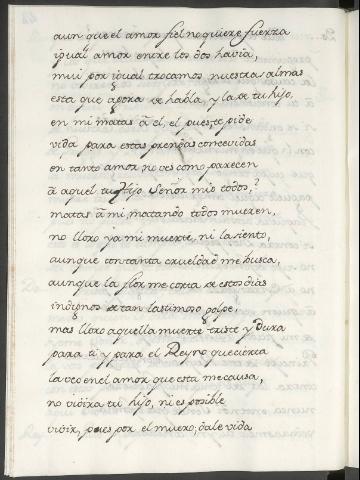 aun que el amor fiel no quiere fuerza
igual amor entre los dos havia,
mui por igual trocamos nuestras almas
esta que agora te habla, y la de tu hijo,
en mi matas á él, el pues te pide
vida para estas prendas concevidas
en tanto amor no ves como parecen
á aquel tu Hijo Señor mio todos,?
matas á mi, matando todos mueren,
no lloro ya mi muerte, ni la siento,
aunque con tanta crueldad me busca,
aunque la flor me corta de estos dias
indignos de tan lastimoso golpe,
mas lloro aquella muerte triste y dura
para ti y para el Reyno que cierta
la veo en el amor que esta me causa,
no vivira tu hijo, ni es posible
vivir, pues por el muero; dale vida